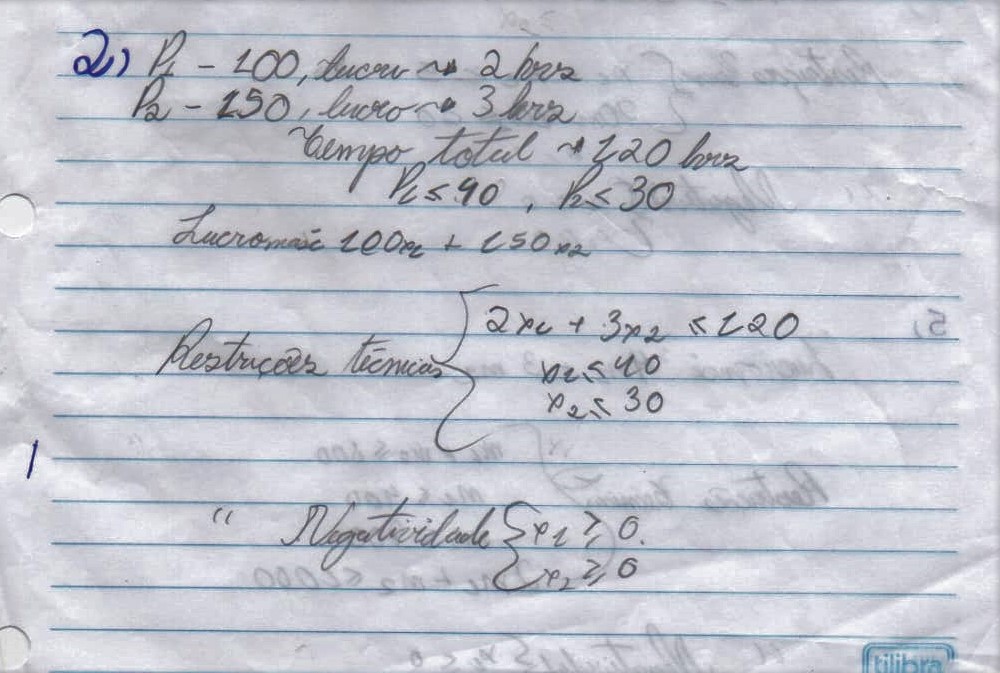 2) P1 - 100, lucro → 2 hrs
P2 - 150, lucro → 3 hrs
Tempo total → 120 hrs
P1 ≤ 40, P2 ≤ 30
Lucro máx 100x1 + 150x2
Restrições técnicas { 2x1 + 3x2 ≤ 120
x1 ≤ 40
x2 ≤ 30
" Negatividade { x1 ≥ 0.
x2 ≥ 0
tilibra